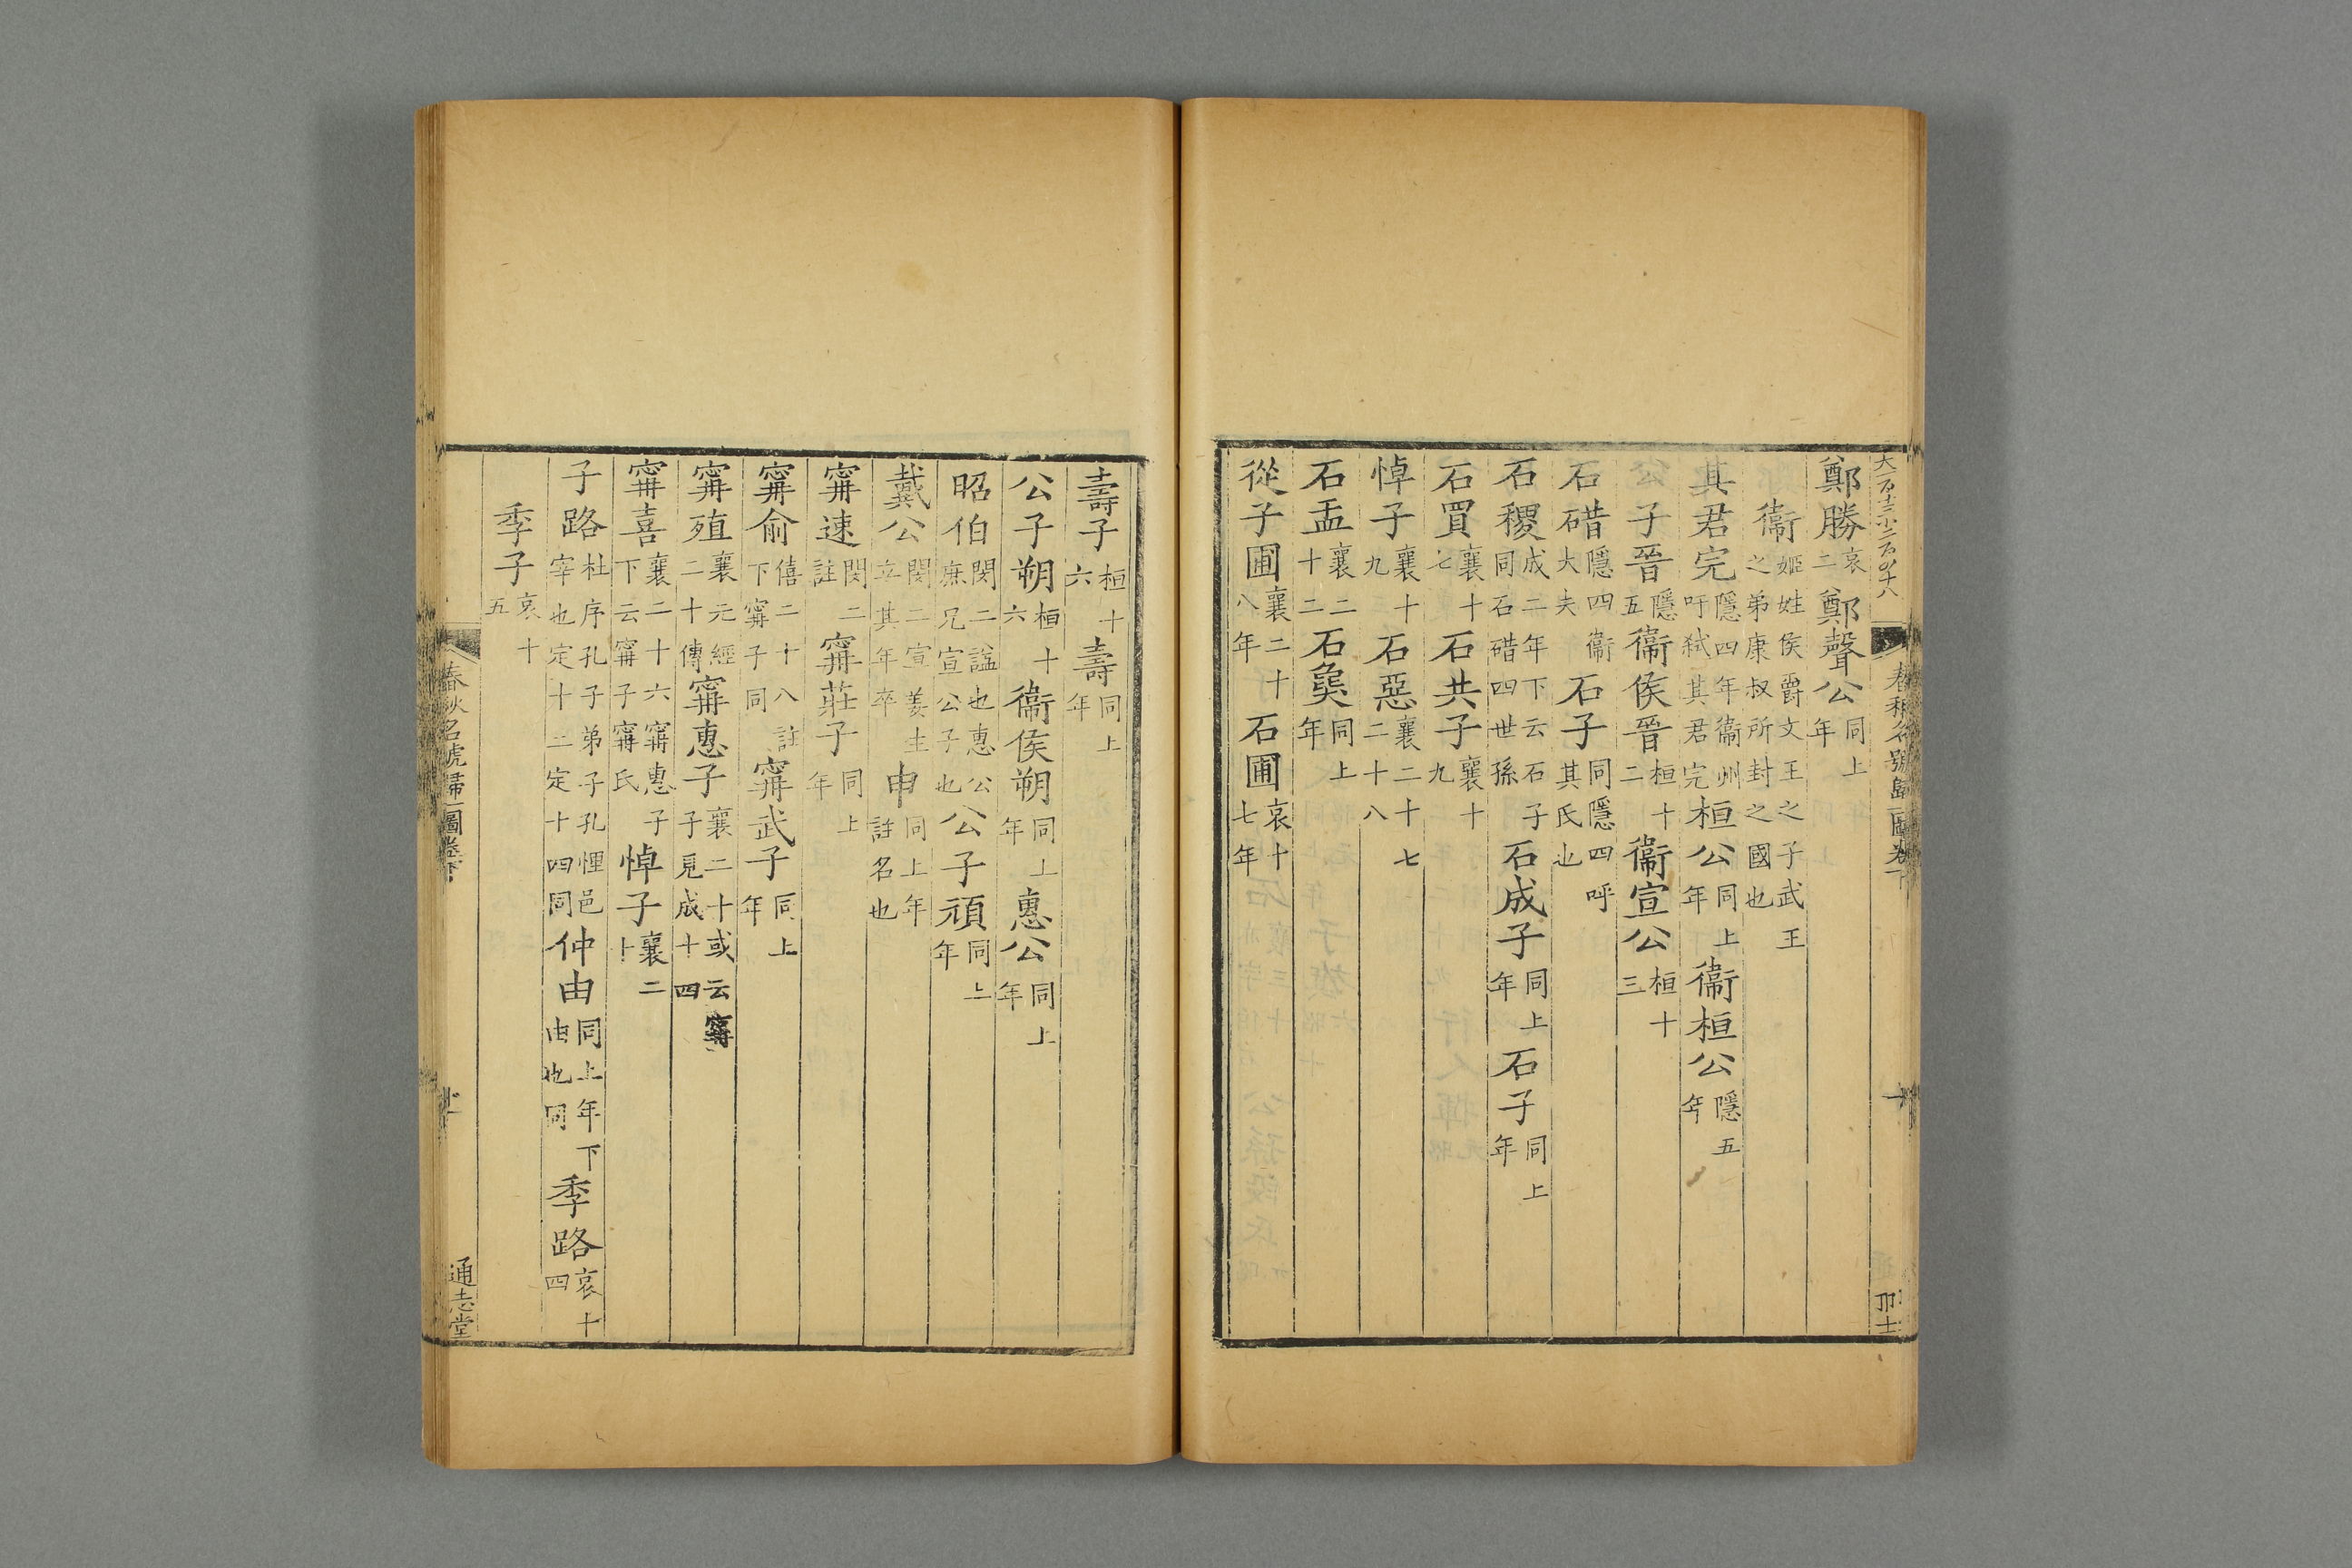 鄭勝哀二鄭聲公同上年
衞姬姓侯爵文王之子武王之弟康叔所封之國也
其君完隱四年衞州吁弑其君完桓公同上年衞桓公隱五年
公子晉隱五衞侯晉桓十二衞宣公桓十三
石碏隱四衞大夫石子同隱四呼其氏也
石稷成二年下云石子同石碏四世孫石成子同上年石子同上年
石買襄十七石共子襄十九
悼子襄十九石惡襄二十七二十八
石盂襄二十二石㚟同上年
從子圃襄二十八年石圃哀十七年
春秋名號歸一圖卷下
壽子桓十六壽同上年
公子朔桓十六衞侯朔同上年惠公同上年
昭伯閔二謚也惠公庶兄宣公子也公子頑同上年
戴公閔二宣姜生立其年卒申同上年註名也
甯速閔二註甯莊子同上年
甯俞僖二十八註下甯子同甯武子同上年
甯殖襄元經二十傳甯惠子襄二十或云甯子見成十四
甯喜襄二十六甯惠子下云甯子甯氏悼子襄二十
子路杜序孔子弟子孔悝邑宰也定十二定十四同仲由同上年下由也同季路哀十四
季子哀十五
春秋名號歸一圖卷下
通志堂